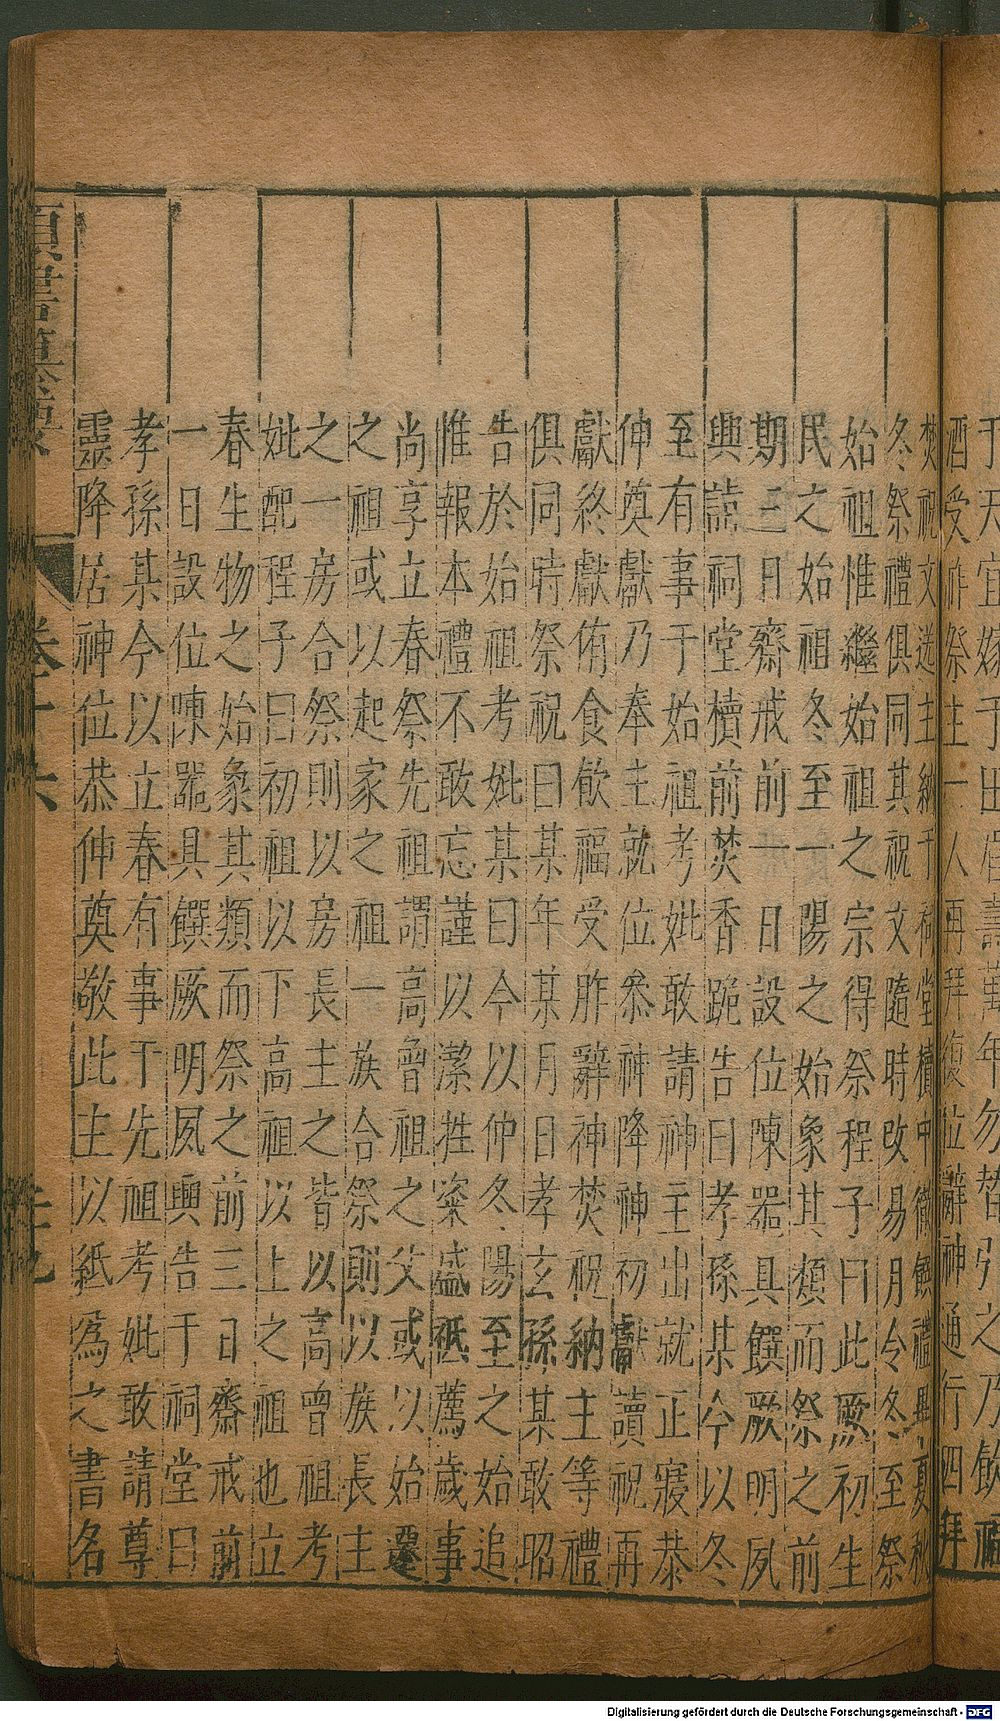 于天宜嫁于田眉壽萬年勿替引之乃飲福
酒受胙祭主一人再拜復位辭神通行四拜
焚祝文送主納于祠堂櫝中徹饌禮畢夏秋
冬祭禮俱同其祝文隨時改易月令冬至祭
始祖惟繼始祖之宗得祭程子曰此厥初生
民之始祖冬至一陽之始象其類而祭之前
期三日齋戒前一日設位陳器具饌厥明夙
興詣祠堂櫝前焚香跪告曰孝孫某今以冬
至有事于始祖考妣敢請神主出就正寢恭
伸奠獻乃奉主就位叅神降神初獻讀祝再
獻終獻侑食飲福受胙辭神焚祝納主等禮
俱同時祭祝曰某年某月日孝玄孫某敢昭
告於始祖考妣某曰今以仲冬陽至之始追
惟報本禮不敢忘謹以潔牲粢盛祗薦歲事
尚享立春祭先祖謂高曾祖之父或以始遷
之祖或以起家之祖一族合祭則以族長主
之一房合祭則以房長主之皆以高曾祖考
妣配程子曰初祖以下高祖以上之祖也立
春生物之始象其類而祭之前三日齋戒前
一日設位陳器具饌厥明夙興告于祠堂曰
孝孫某今以立春有事于先祖考妣敢請尊
靈降居神位恭伸奠敬此主以紙爲之書名
卷十六
Digitalisierung gefördert durch die Deutsche Forschungsgemeinschaft - DFG